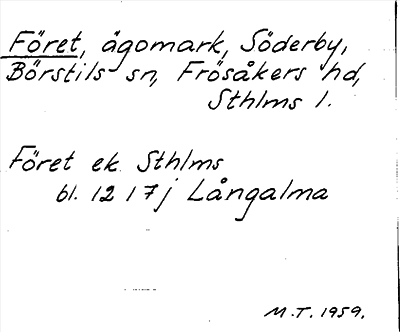 Föret, ägomark, Söderby,
Börstils sn, Frösåkers hd,
Sthlms l.
Föret ek. Sthlms
bl. 12 I 7j Långalma
M.T. 1959.